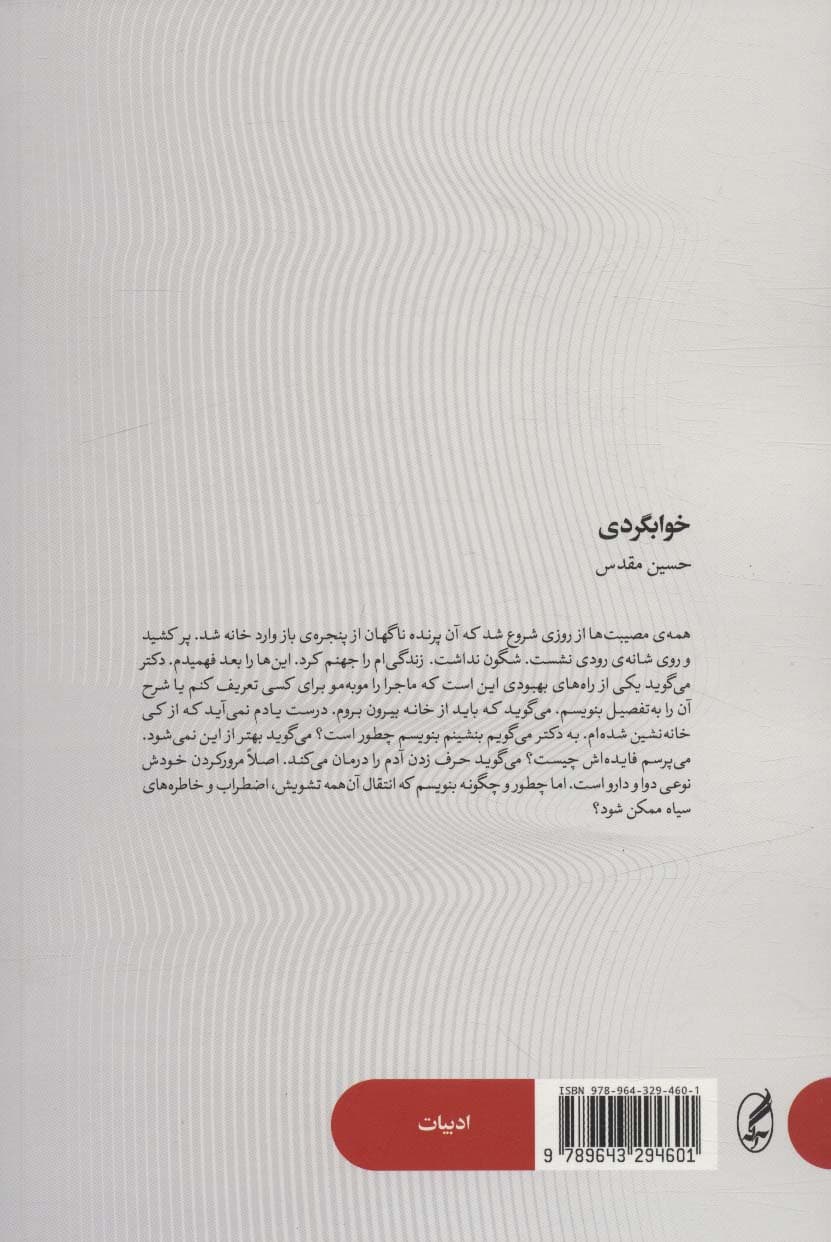 خوابگردی
حسین مقدس
همه‌ی مصیبت‌ها از روزی شروع شد که آن پرنده ناگهان از پنجره‌ی باز وارد خانه شد. پر کشید
و روی شانه‌ی رودی نشست. شگون نداشت. زندگی‌ام را جهنم کرد. این‌ها را بعد فهمیدم. دکتر
می‌گوید یکی از راه‌های بهبودی این است که ماجرا را موبه‌مو برای کسی تعریف کنم یا شرح
آن را به‌تفصیل بنویسم. می‌گوید که باید از خانه بیرون بروم. درست یادم نمی‌آید که از کی
خانه‌نشین شده‌ام. به دکتر می‌گویم بنشینم بنویسم چطور است؟ می‌گوید بهتر از این نمی‌شود.
می‌پرسم فایده‌اش چیست؟ می‌گوید حرف زدن آدم را درمان می‌کند. اصلاً مرورکردن خودش
نوعی دوا و دارو است. اما چطور و چگونه بنویسم که انتقال آن‌همه تشویش، اضطراب و خاطره‌های
سیاه ممکن شود؟
ISBN 978-964-329-460-1
ادبیات
9 789643 294601
آگه